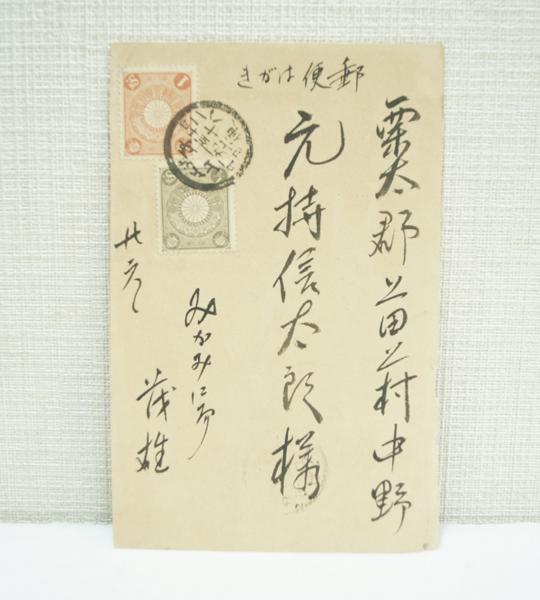 郵便はがき
栗太郡上田上村中野
元持信太郎様
みかみにて
茂雄